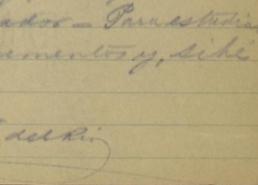 ador - Para estudia
ementos y, si hé
del Rio